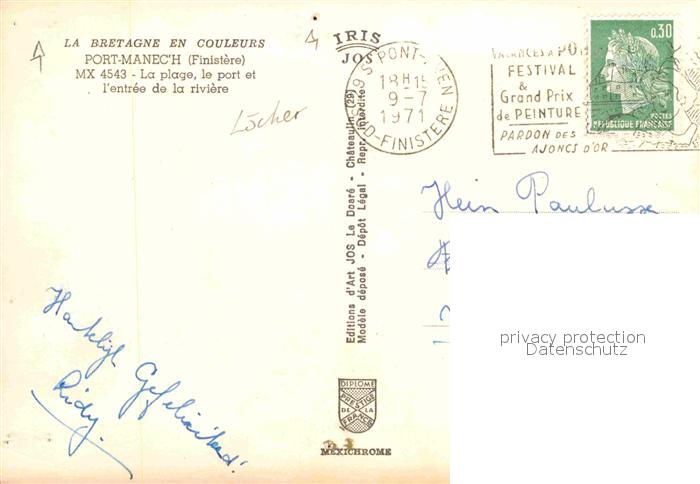 LA BRETAGNE EN COULEURS
PORT-MANEC'H (Finistère)
MX 4543 - La plage, le port et
l'entrée de la rivière
Löcher
IRIS
JOS
Editions d'Art JOS Le Doaré - Châteaulin (29)
Modèle déposé - Dépôt Légal - Repr. interdite
29 S PONT-AVEN
18H15
9-7
1971
FINISTERE
VACANCES A PONT
FESTIVAL
&
Grand Prix
de PEINTURE
PARDON DES
AJONCS D'OR
0,30
POSTES
REPUBLIQUE FRANÇAISE
Hein Paulusse
Hartelijk Gefeliciteerd!
Ridy.
privacy protection
Datenschutz
DIPLOME
PRESTIGE
DE LA
FRANCE
MEXICHROME